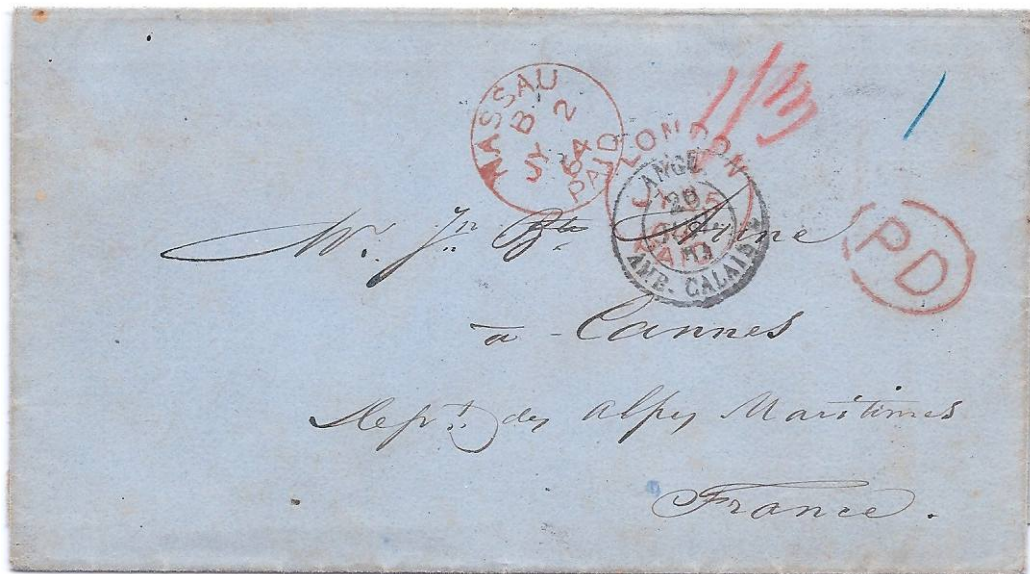 NASSAU
B
JY 2
64
PAID
1/3
1
LONDON
PAID
ANGL.
AMB. CALAIS
PD
Mr. Jn Bte
à Cannes
Dept. des Alpes Maritimes
France.